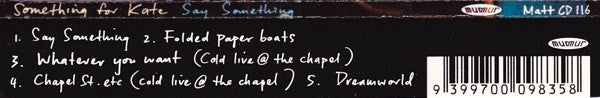 Something for Kate Say Something murmur Matt CD 116
1. Say Something 2. Folded paper boats
murmur
3. Whatever you want (Cold live @ the chapel)
4. Chapel St. etc (cold live @ the chapel) 5. Dreamworld
9 399700 098358